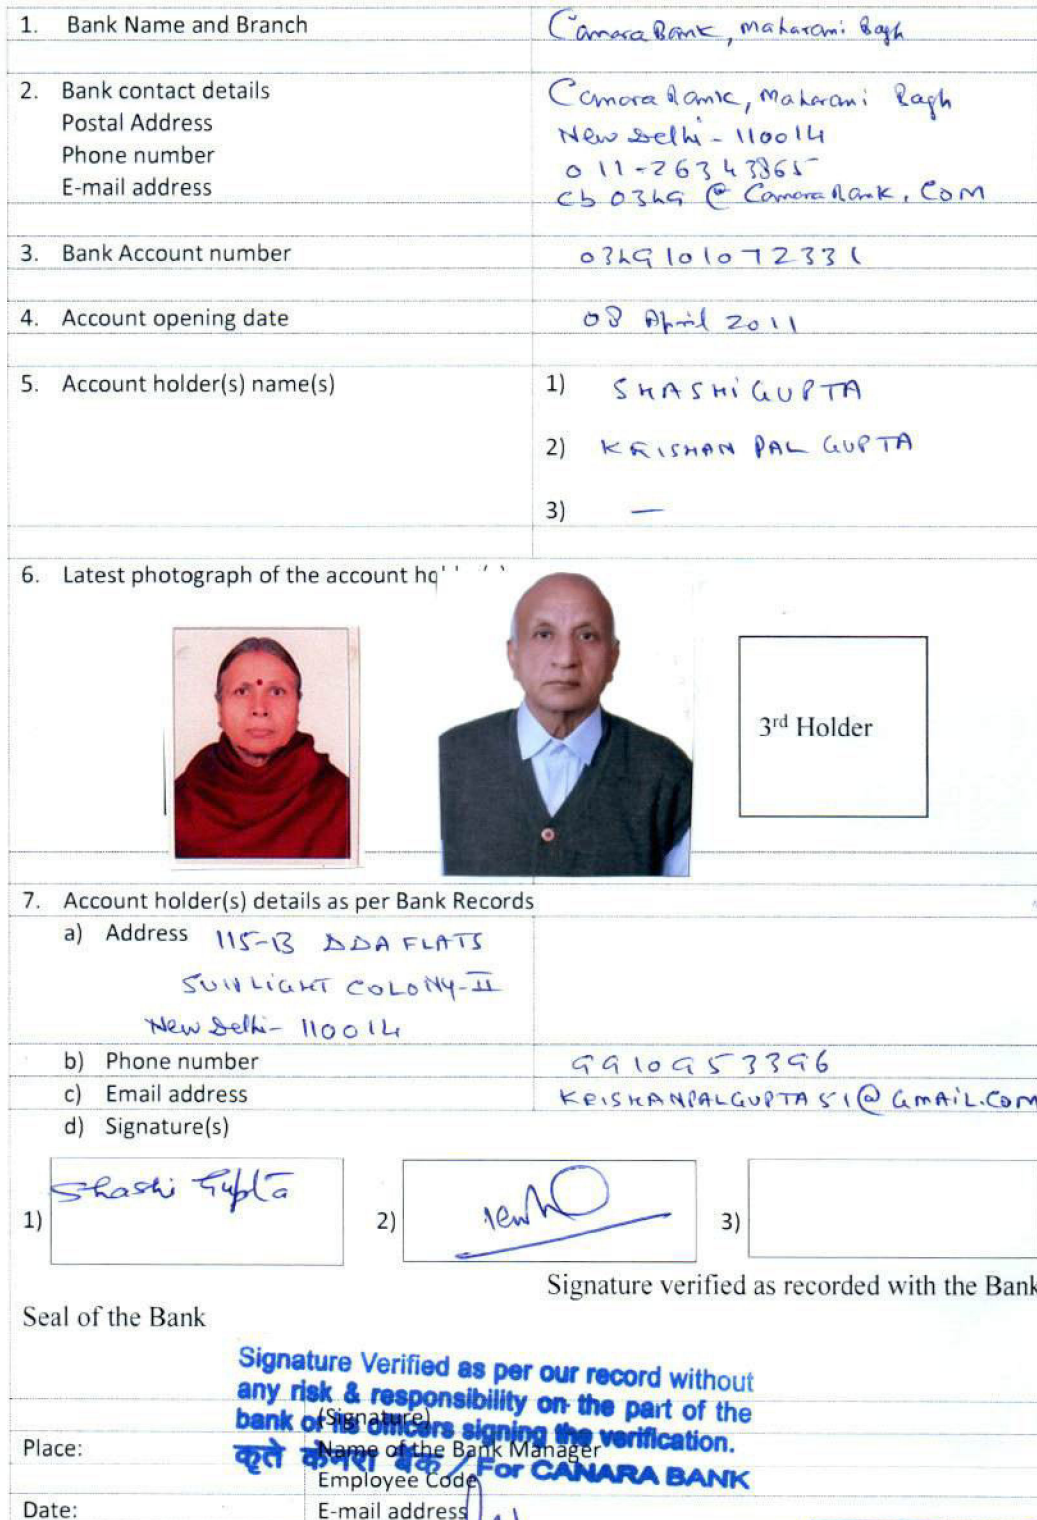 1. Bank Name and Branch Canara Bank, Maharani Bagh
2. Bank contact details Canara Bank, Maharani Bagh
Postal Address New Delhi - 110014
Phone number 011-26343865
E-mail address cb0349@CanaraBank.Com
3. Bank Account number 0349101072331
4. Account opening date 08 April 2011
5. Account holder(s) name(s) 1) SHASHI GUPTA
2) KRISHAN PAL GUPTA
3) —
6. Latest photograph of the account
3rd Holder
7. Account holder(s) details as per Bank Records
a) Address 115-B DDA FLATS
SUNLIGHT COLONY-II
New Delhi- 110014
b) Phone number 9910953396
c) Email address KRISHANPALGUPTA51@GMAIL.COM
d) Signature(s)
1) Shashi Gupta 2) 3)
Signature verified as recorded with the Bank
Seal of the Bank
Signature Verified as per our record without
any risk & responsibility on the part of the
bank or its officers signing the verification.
कृते केनरा बैंक / For CANARA BANK
(Signature)
Place: Name of the Bank Manager
Employee Code
Date: E-mail address